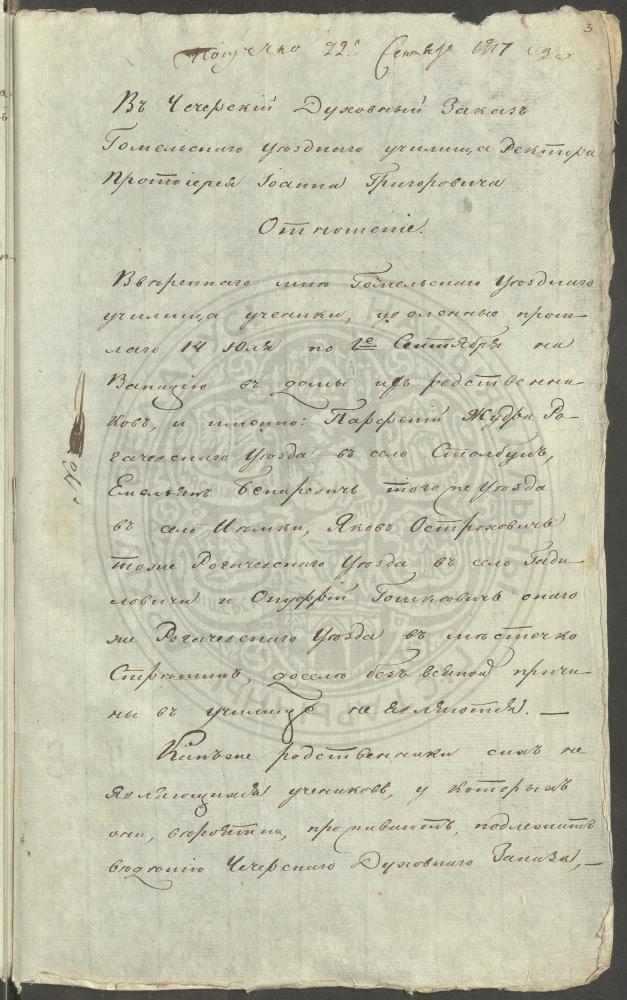 3
Получено 22. Сентябр 1817 года
Въ Чечерскій Духовный Заказъ
Гомельскаго уѣзднаго училища Ректора
Протоіерея Іоанна Григоровича
Отношеніе.
Ввѣреннаго мнѣ Гомельскаго Уѣзднаго
училища ученики, уволенные прош-
лаго 14 Юля по 1е Сентября на
Вакацію въ домы ихъ родственни-
ковъ, и именно: Парфеній Жудра Ро-
гачевскаго Уѣзда въ село Столбунъ,
Емельянъ того же Уѣзда
въ село Яковъ Островичъ
тоже Рогачевскаго Уѣзда въ село Гади-
ловичи и Онуфрій Гошкевичъ онаго
же Рогачевскаго Уѣзда въ мѣстечко
Стрѣшинъ, доселѣ безъ всякой причи-
ны въ училище не являются. —
Какъ же родственники сихъ не
являющихся учениковъ, у которыхъ
они, вѣроятно, проживаютъ, подлежатъ
вѣдѣнію Чечерскаго Духовнаго Заказа, —